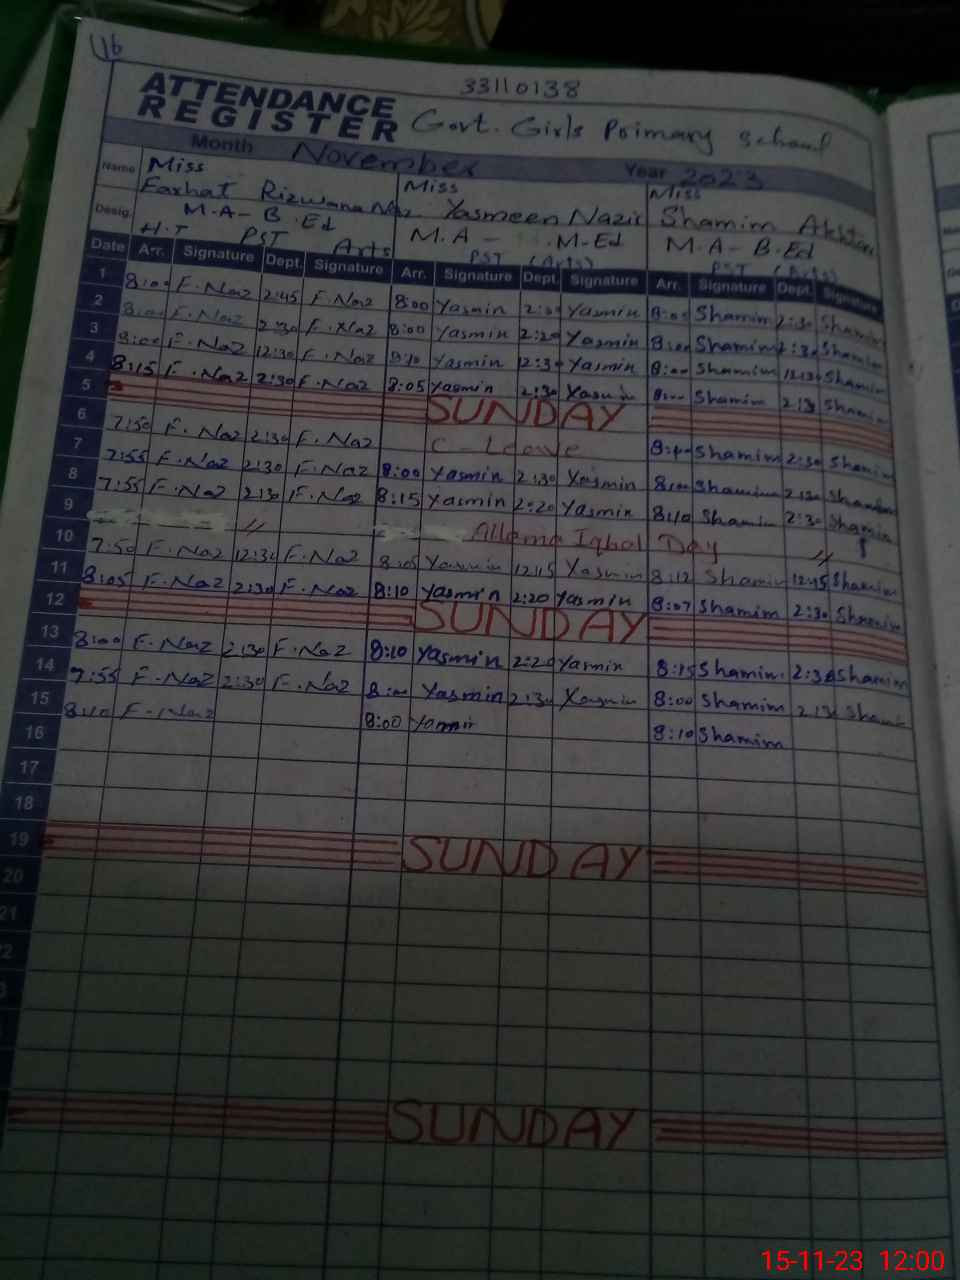 16
33110138
ATTENDANCE
REGISTER Govt. Girls Primary school
Month November Year 2023
Name Miss Miss Miss
Farhat Rizwana Naz Yasmeen Nazir Shamim Akhtar
Desig. M.A- B.Ed M.A - M-Ed M.A- B.Ed
H.T PST Arts PST (Arts) PST (Arts)
Date Arr. Signature Dept. Signature Arr. Signature Dept. Signature Arr. Signature Dept. Signature
1 8:00 F.Naz 2:45 F.Naz 8:00 Yasmin Yasmin 8:00 Shamim 2:30 Shamim
2 8:00 F.Naz 2:30 F.Naz 8:00 Yasmin 2:20 Yasmin 8:00 Shamim 2:30 Shamim
3 8:00 F.Naz 12:30 F.Naz 8:10 Yasmin 12:30 Yasmin 8:00 Shamim 12:30 Shamim
4 8:15 F.Naz 2:30 F.Naz 8:05 Yasmin 2:30 Yasmin 8:00 Shamim Shamim
5 SUNDAY
6 7:50 F.Naz 2:30 F.Naz C-Leave Shamim 2:30 Shamim
7 7:55 F.Naz 2:30 F.Naz 8:00 Yasmin 2:30 Yasmin 8:00 Shamim Shamim
8 7:55 F.Naz 2:30 F.Naz 8:15 Yasmin 2:20 Yasmin 8:10 Shamim 2:30 Shamim
9 〃 Allama Iqbal Day 〃
10 7:50 F.Naz 12:30 F.Naz 8:05 Yasmin 12:15 Yasmin 8:12 Shamim 12:15 Shamim
11 8:05 F.Naz 2:30 F.Naz 8:10 Yasmin 2:20 Yasmin 8:07 Shamim 2:30 Shamim
12 SUNDAY
13 8:00 F.Naz 2:30 F.Naz 8:10 Yasmin 2:20 Yasmin 8:15 Shamim 2:30 Shamim
14 7:55 F.Naz 2:30 F.Naz 8:00 Yasmin 2:30 Yasmin 8:00 Shamim Shamim
15 8:10 F.Naz 8:00 Yasmin 8:10 Shamim
16
17
18
19 SUNDAY
20
21
SUNDAY
15-11-23 12:00